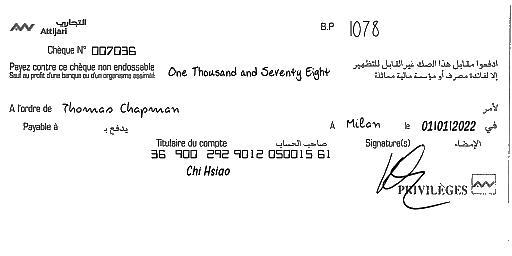 التجاري
Attijari
B.P 1078
Chèque N° 007036
Payez contre ce chèque non endossable
Sauf au profit d'une banque ou d'un organisme assimilé
One Thousand and Seventy Eight
ادفعوا مقابل هذا الصك غير القابل للتظهير
إلا لفائدة مصرف أو مؤسسة مالية مماثلة
A l'ordre de Thomas Chapman لأمر
Payable à يدفع بـ A Milan le 01/01/2022 في
Titulaire du compte صاحب الحساب Signature(s) الإمضاء
36 900 292 9012 050015 61
Chi Hsiao
PRIVILÈGES